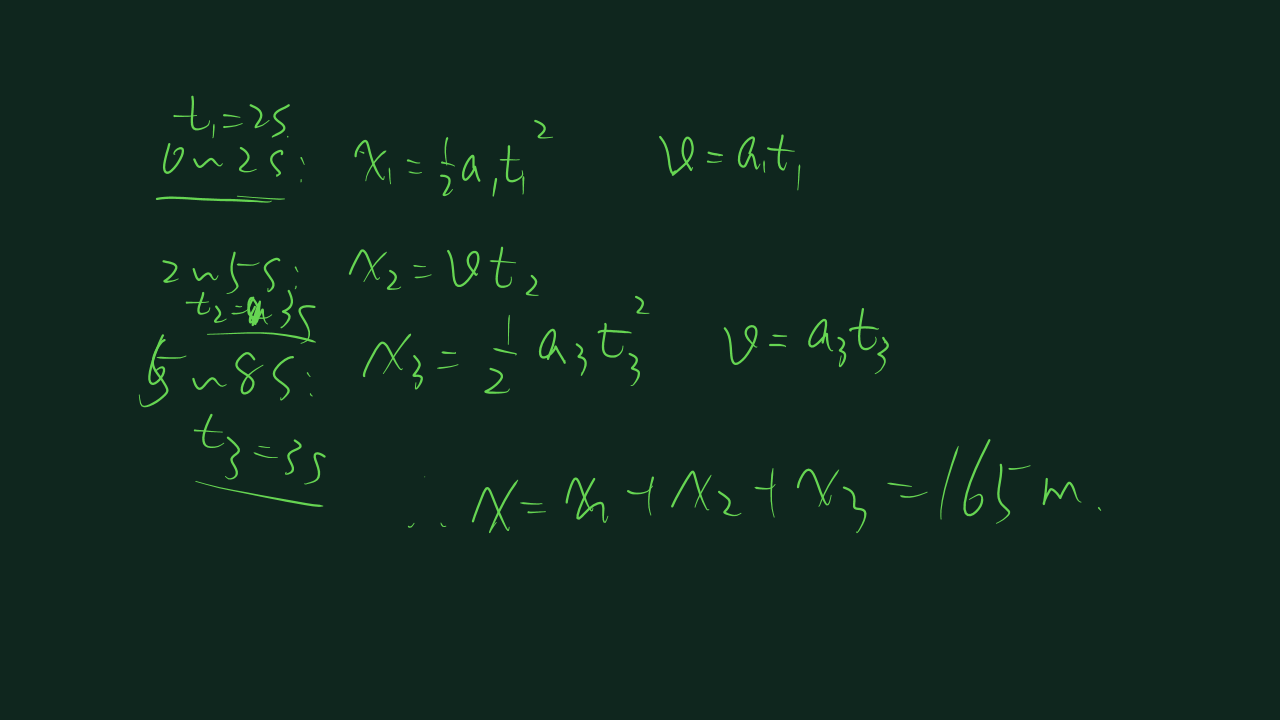 t₁=2s
0~2s: x₁=½a₁t₁² v=a₁t₁
2~5s: x₂=vt₂
t₂=3s
5~8s: x₃=½a₃t₃² v=a₃t₃
t₃=3s
∴ x=x₁+x₂+x₃=165m.